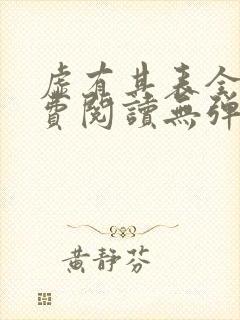 虛有其表全
費閱讀無彈
黃靜芬